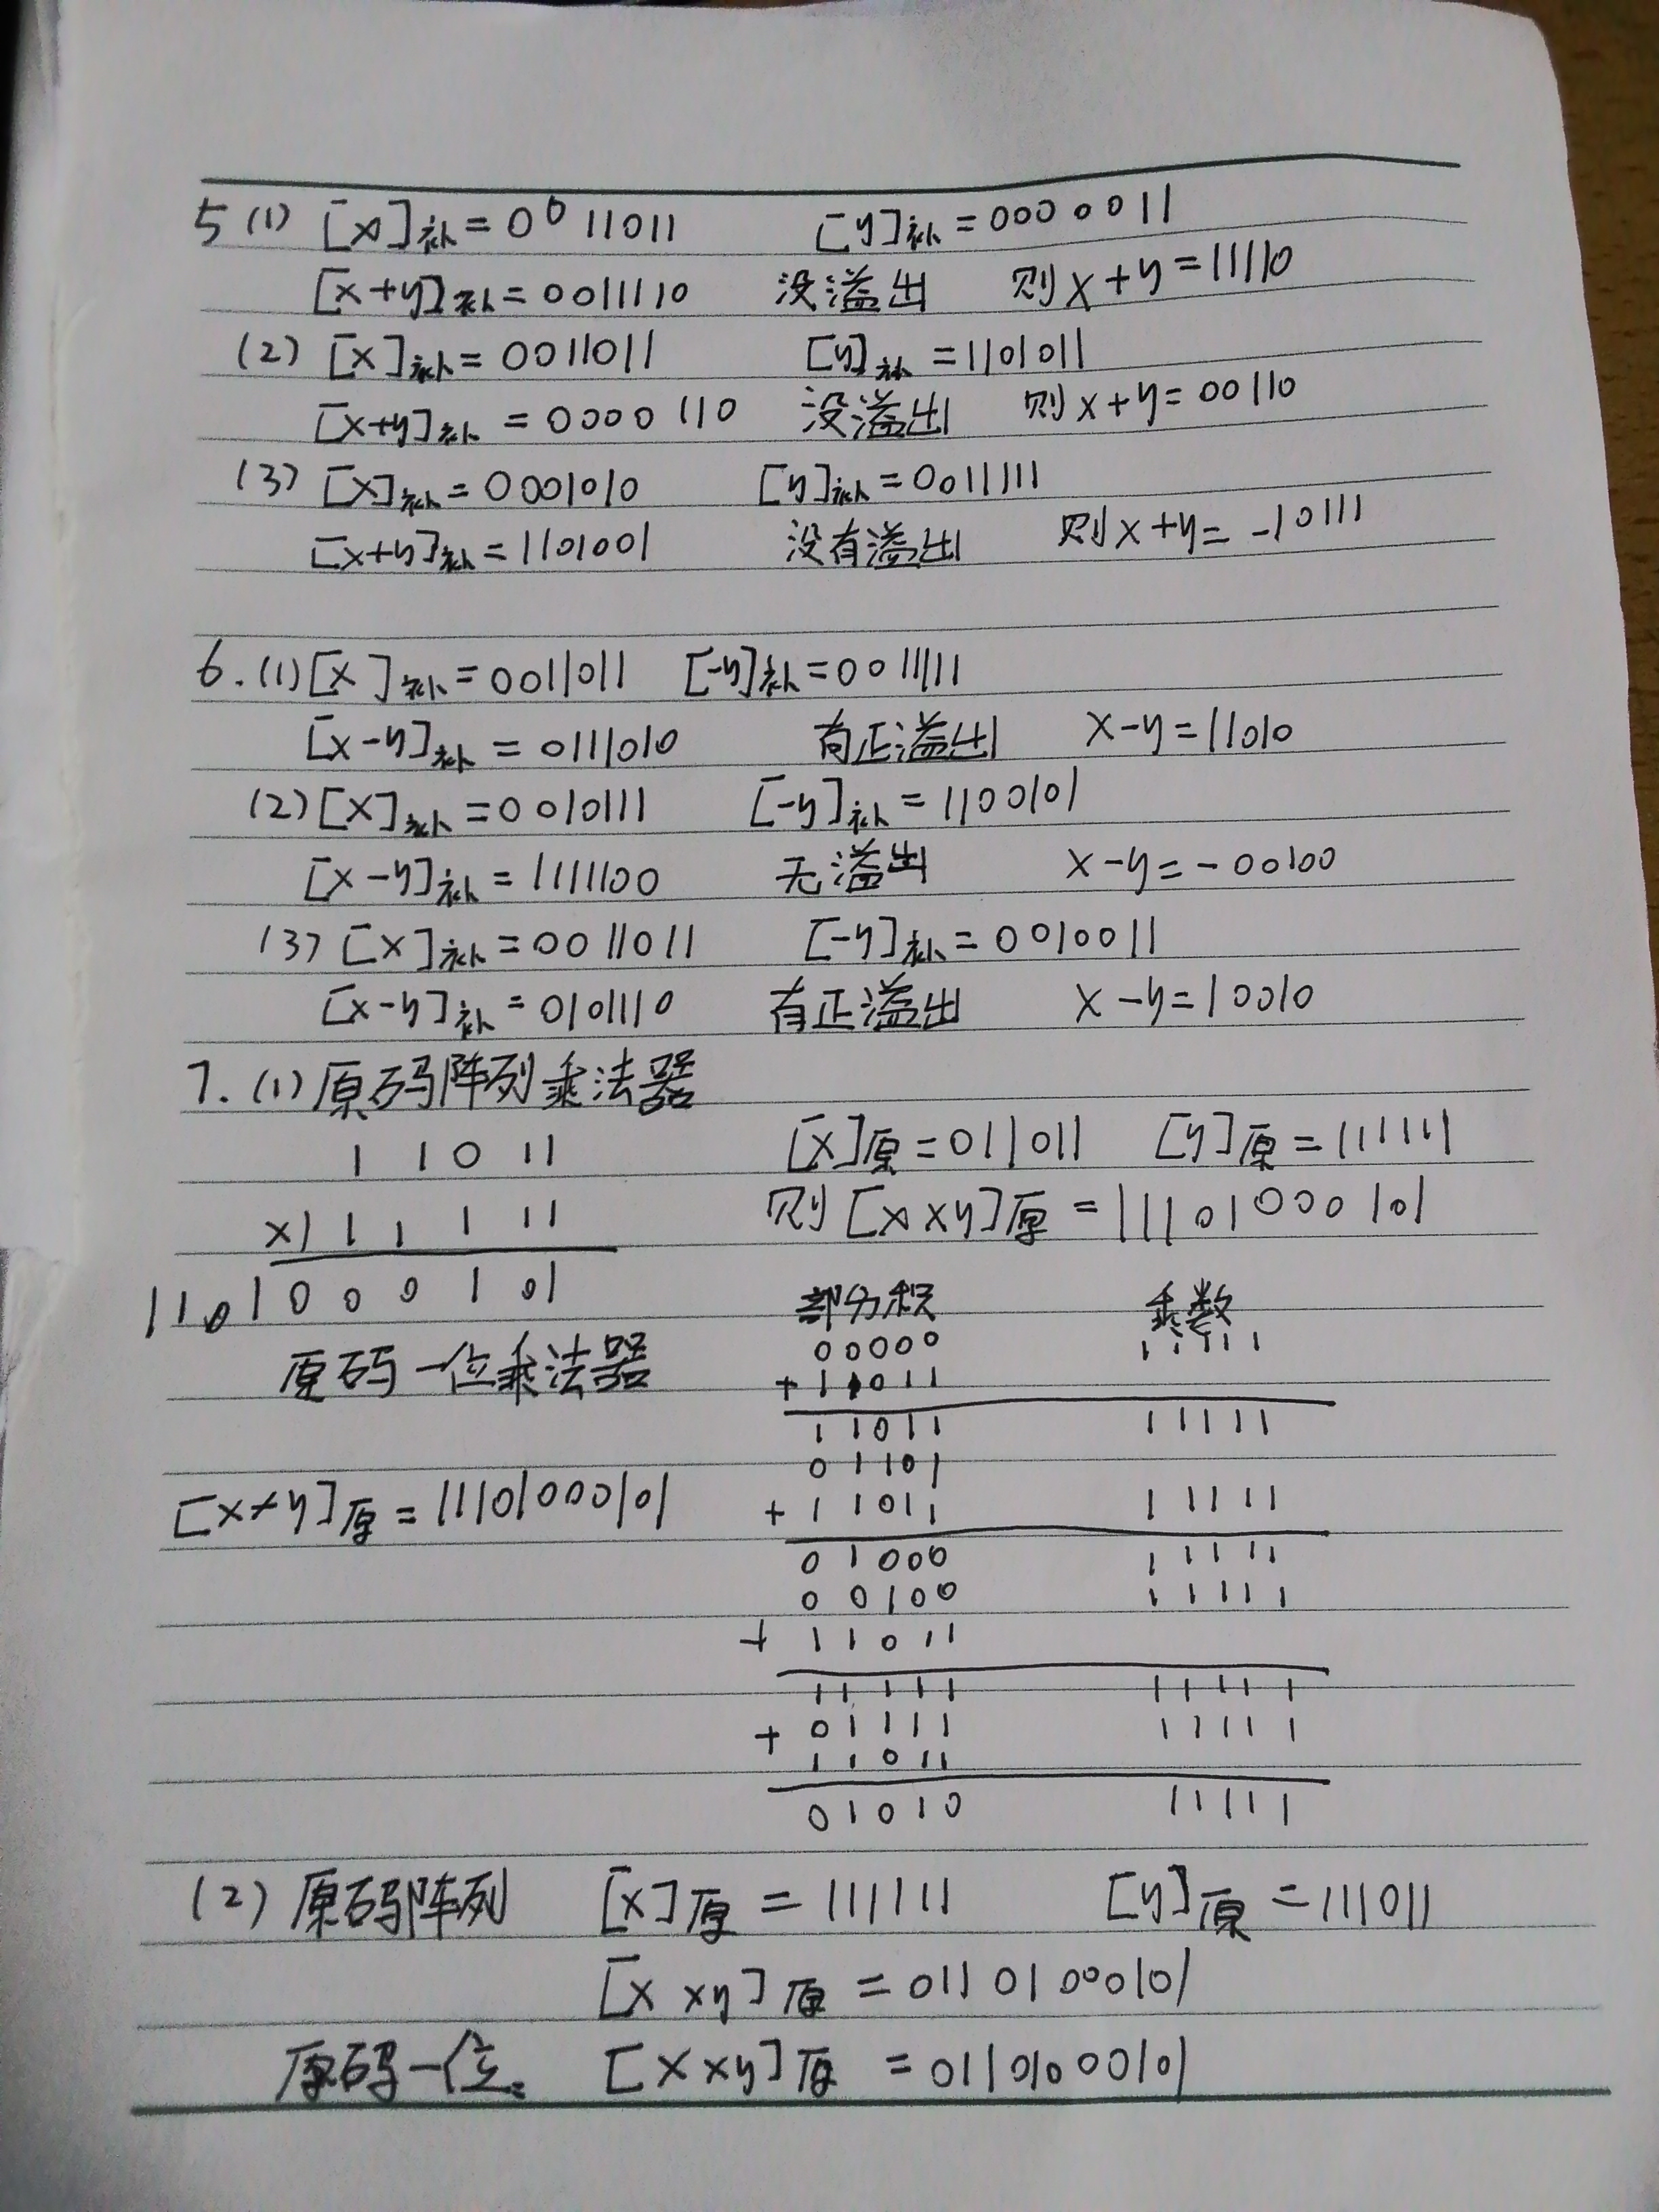 5 (1) [x]补=0011011 [y]补=0000011
[x+y]补=0011110 没溢出 则x+y=11110
(2) [x]补=0011011 [y]补=1101011
[x+y]补=0000110 没溢出 则x+y=00110
(3) [x]补=0001010 [y]补=0011111
[x+y]补=1101001 没有溢出 则x+y=-10111
6.(1)[x]补=0011011 [-y]补=0011111
[x-y]补=0111010 有正溢出 x-y=11010
(2)[x]补=0010111 [-y]补=1100101
[x-y]补=1111100 无溢出 x-y=-00100
(3)[x]补=0011011 [-y]补=0010011
[x-y]补=0101110 有正溢出 x-y=10010
7.(1)原码阵列乘法器
1 1 0 1 1 [x]原=011011 [y]原=111111
×) 1 1 1 1 1 则[x×y]原=11101000101
1101000101 部分积 乘数
00000 11111
原码一位乘法器 +11011
11011 11111
01101
[x×y]原=11101000101 +11011 11111
01000 11111
00100 11111
+11011
11111 11111
+01111 11111
11011
01010 11111
(2)原码阵列 [x]原=111111 [y]原=111011
[x×y]原=01101000101
原码一位: [x×y]原=01101000101